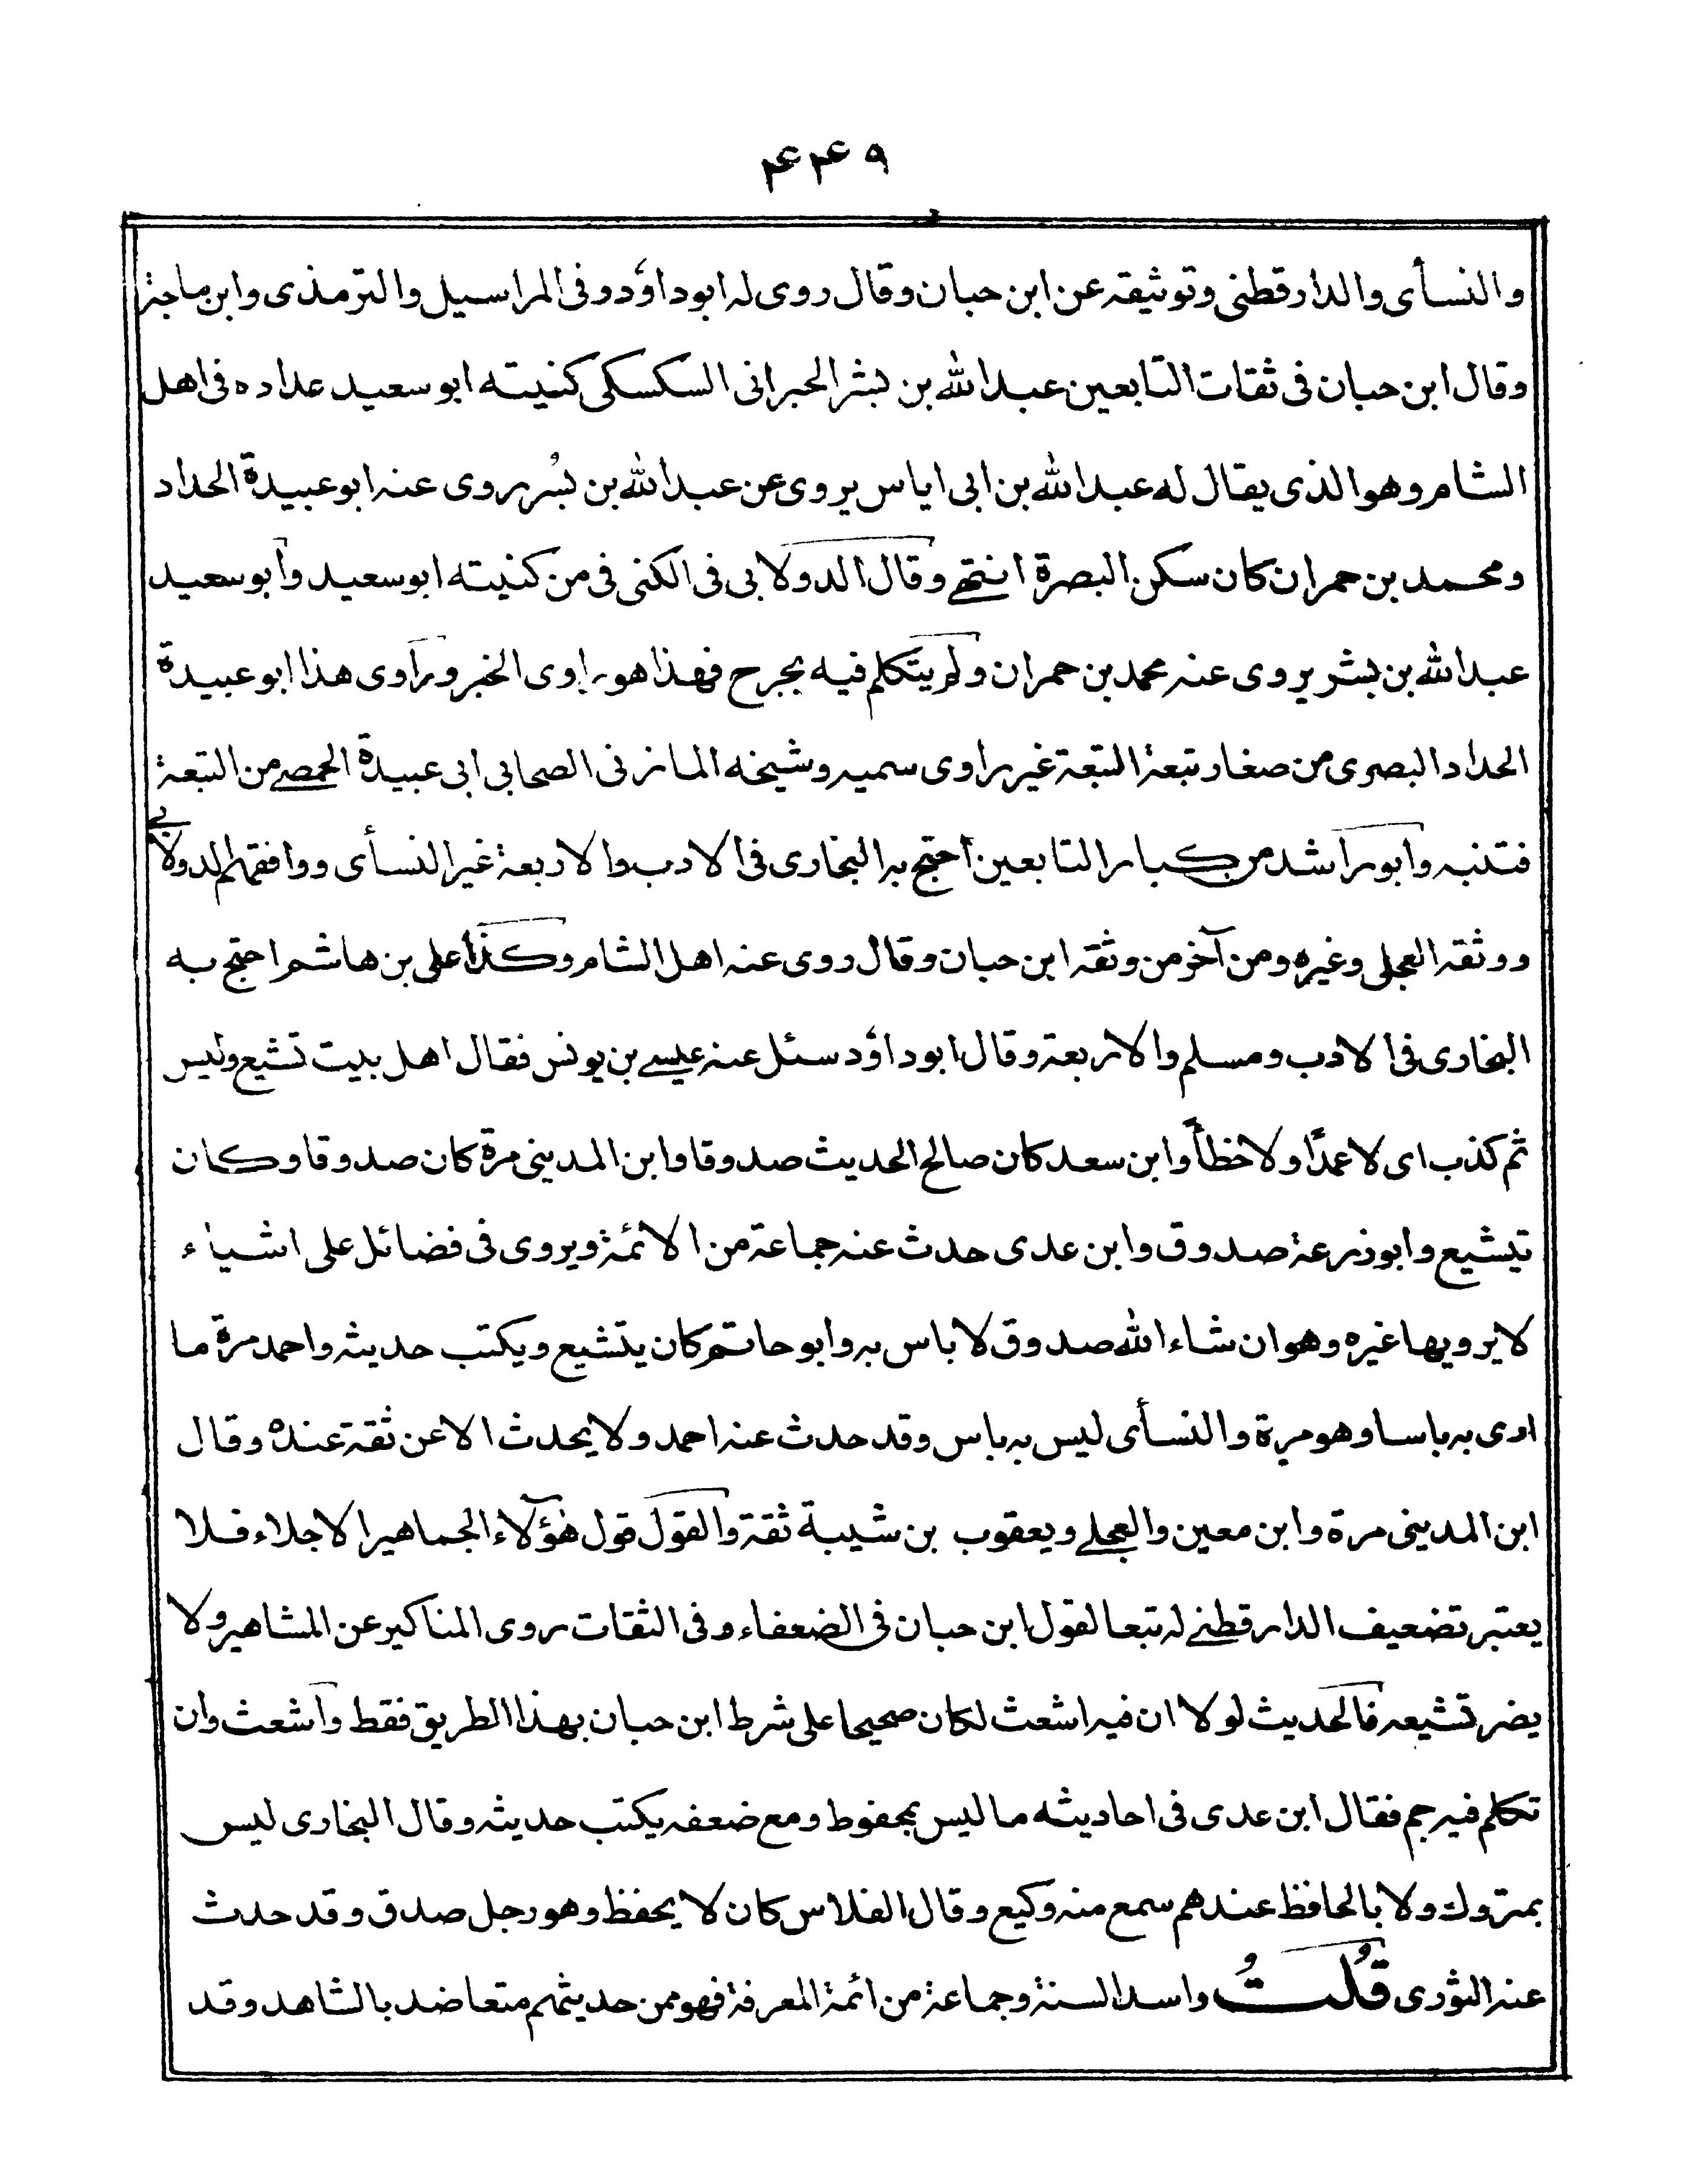 ۴۴۹
والنسأى والدارقطنى وتوثيقه عن ابن حبان وقال روى له ابوداؤد وفى المراسيل والترمذى وابن ماجة
وقال ابن حبان فى ثقات التابعين عبدالله بن بشر الحبرانى السكسكى كنيته ابو سعيد عداده فى اهل
الشام وهو الذى يقال له عبدالله بن ابى اياس يروى عن عبدالله بن بُسُر روى عنه ابو عبيدة الحداد
ومحمد بن حمران كان سكن البصرة انتهى وقال الدولابى فى الكنى فى من كنيته ابو سعيد وأبو سعيد
عبدالله بن بشر يروى عنه محمد بن حمران ولم يتكلم فيه بجرح فهذا هو راوى الخبر وراوى هذا ابو عبيدة
الحداد البصرى من صغار تبعة التبعة غير راوى سميه وشيخه المازنى الصحابى ابى عبيدة الحمصى من التبعة
فتنبه وابو راشد من كبار التابعين احتج به البخارى فى الادب والاربعة غير النسأى ووافقهم الدولابى
ووثقه العجلى وغيره ومن آخر من وثقه ابن حبان وقال روى عنه اهل الشام وكذا على بن هاشم احتج به
البخارى فى الادب ومسلم والاربعة وقال ابوداؤد سئل عنه عيسى بن يونس فقال اهل بيت تشيع وليس
ثم كذب اى لا عمدًا ولا خطأً وابن سعد كان صالح الحديث صدوقا وابن المدينى مرة كان صدوقا وكان
تيشيع وابوذرعة صدوق وابن عدى حدث عنه جماعة من الائمة ويروى فى فضائل على اشياء
لا يرويها غيره وهو ان شاء الله صدوق لا باس به وابو حاتم كان يتشيع ويكتب حديثه واحمد مرة ما
ارى به باسا وهو مرة والنسأى ليس به باس وقد حدث عنه احمد ولا يحدث الا عن ثقة عنده وقال
ابن المدينى مرة وابن معين والعجلى ويعقوب بن شيبة ثقة والقول قول هؤلاء الجماهير الاجلاء فلا
يعتبر تضعيف الدارقطنى له تبعا لقول ابن حبان فى الضعفاء وفى الثقات روى المناكير عن المشاهير ولا
يضر تشيعه فالحديث لولا ان فيه اشعث لكان صحيحا على شرط ابن حبان بهذا الطريق فقط وأشعث وان
تكلم فيه جم فقال ابن عدى فى احاديثه ما ليس بمحفوظ ومع ضعفه يكتب حديثه وقال البخارى ليس
بمتروك ولا بالحافظ عندهم سمع منه وكيع وقال الفلاس كان لا يحفظ وهو رجل صدق وقد حدث
عنه الثورى قُلتُ واسد السنة وجماعة من ائمة المعرفة فهو ممن حديثهم متعاضد بالشاهد وقد